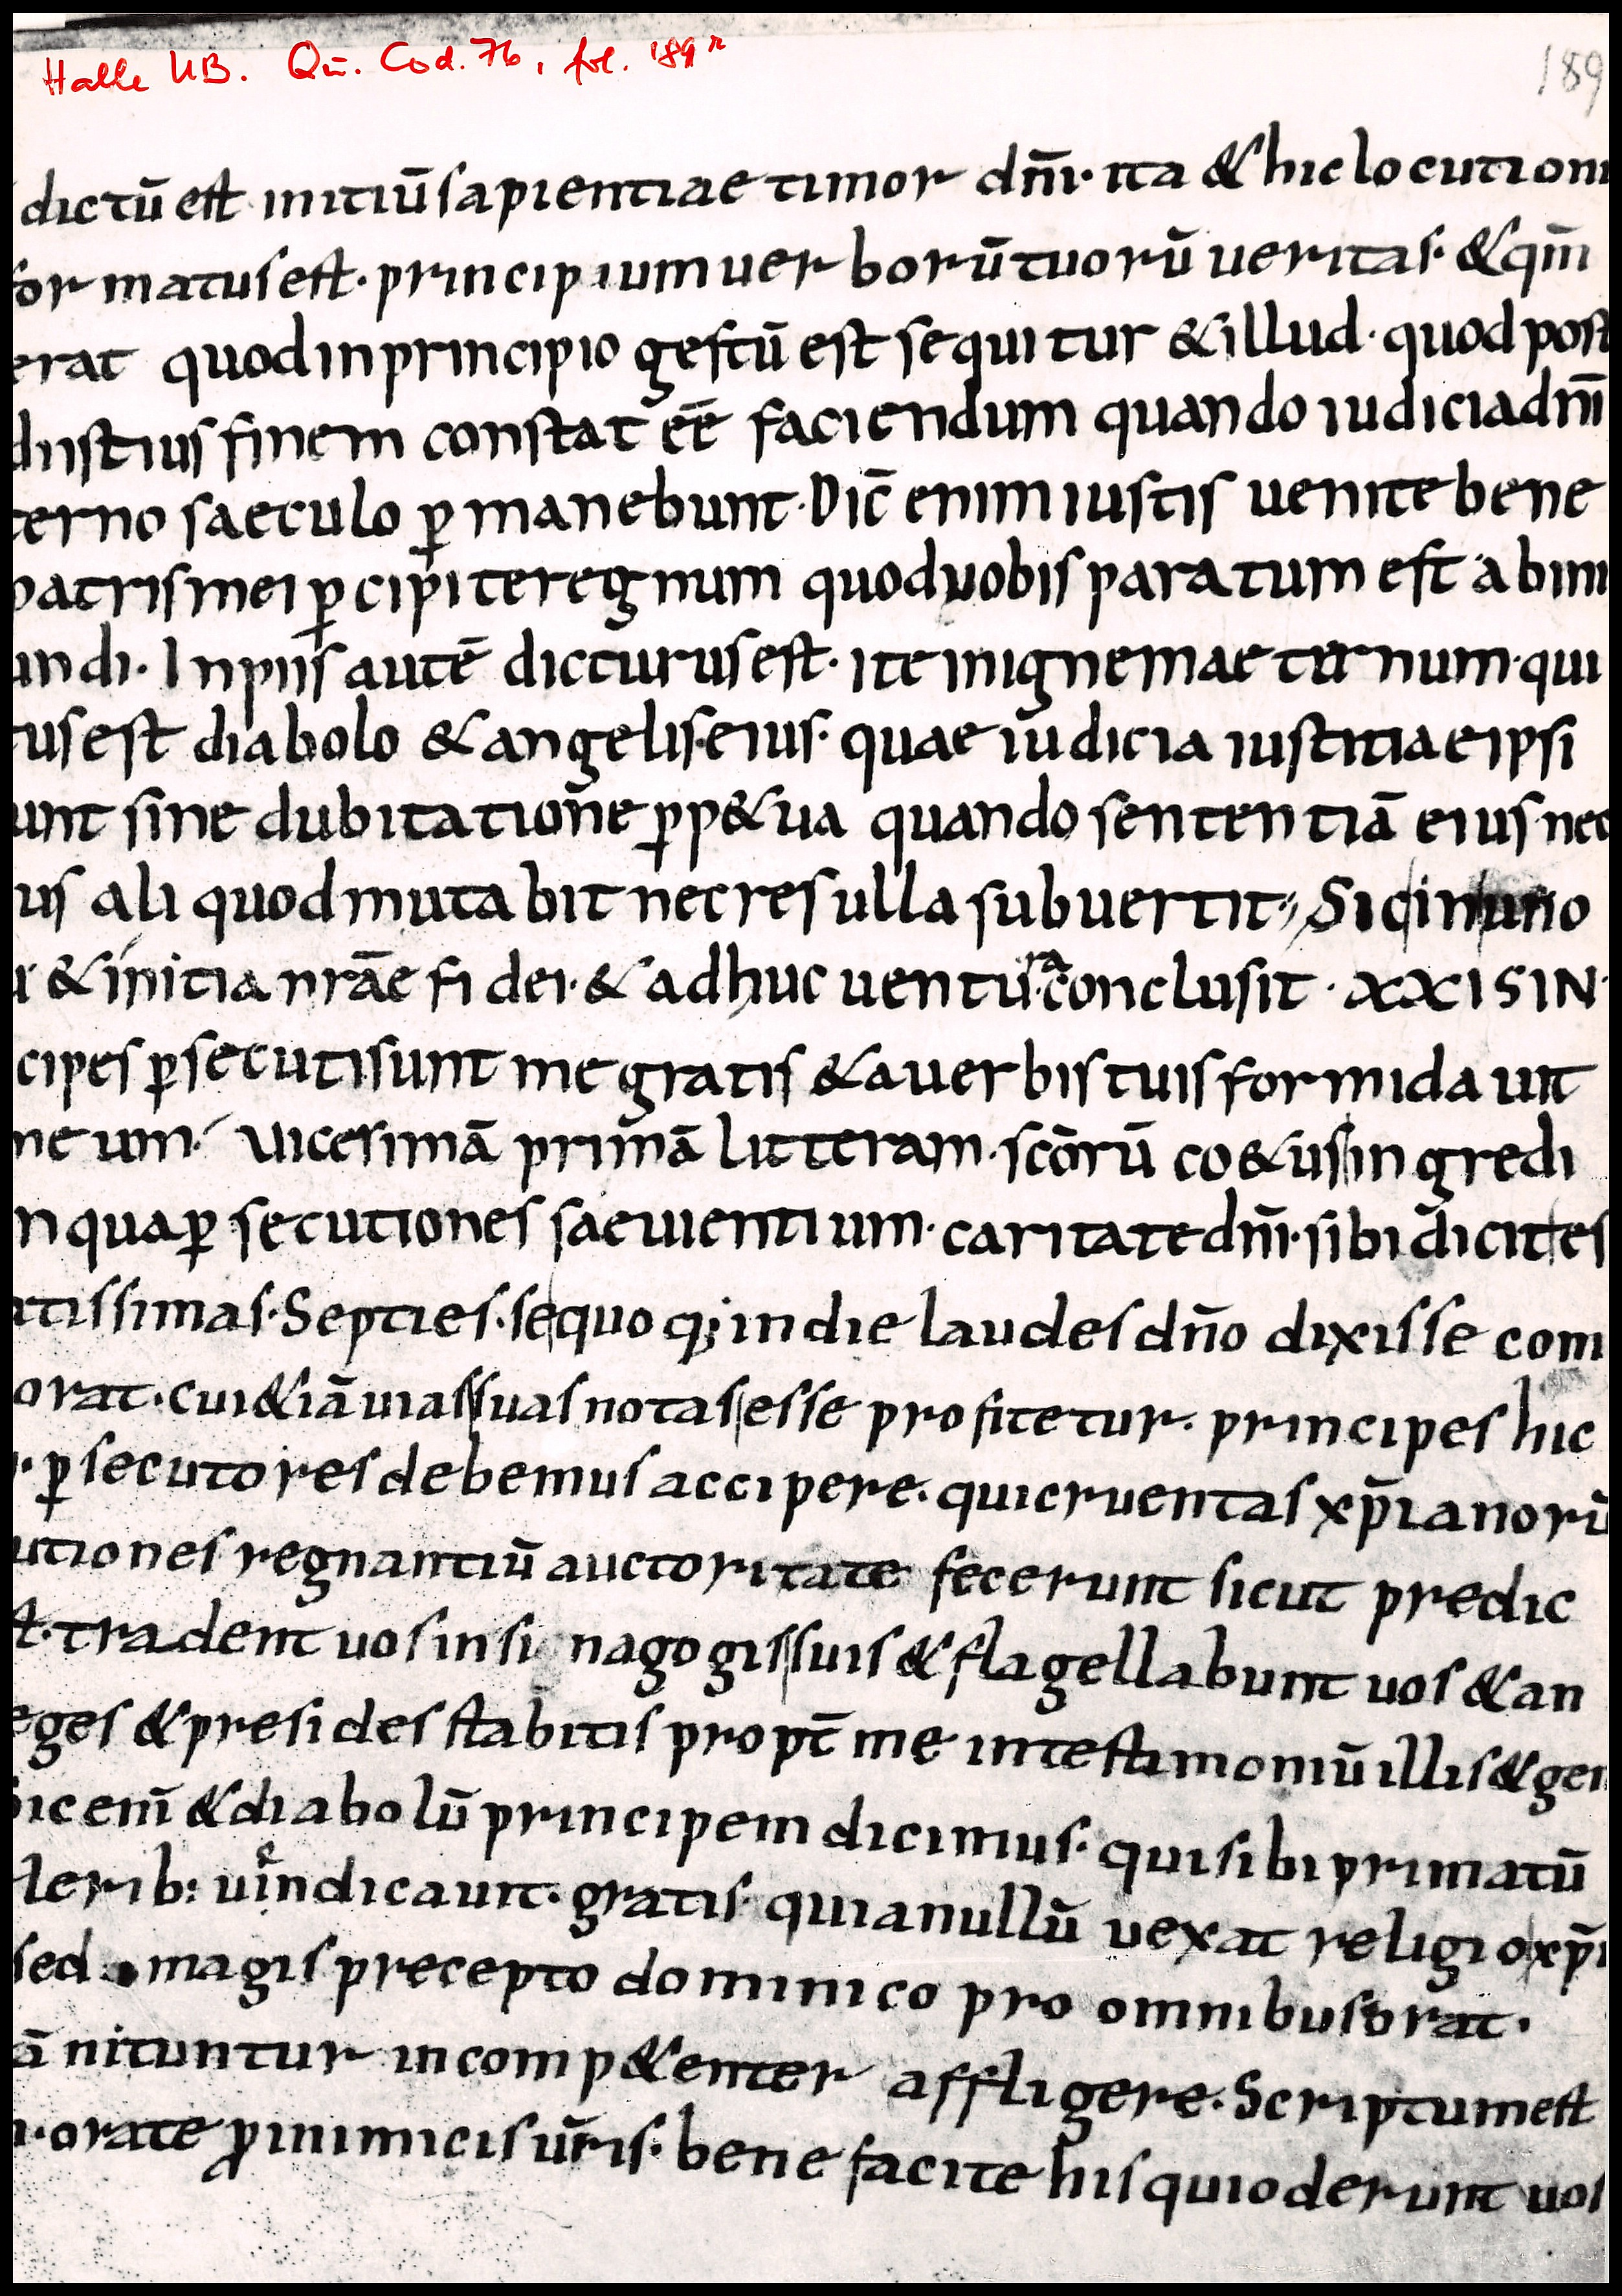 Halle UB. Qu. Cod. 76, fol. 189r
189
dictū est initiū sapientiae timor dn̄i· ita & hic locutioni
for matus est· principium uerborū tuorū ueritas· & qm̄
erat quod in principio gestū est sequitur & illud· quod post
d iustius finem constat eē faciendum quando iudicia dn̄i
terno saeculo ꝑmanebunt· Dic̄ enim iustis uenite bene
patris mei ꝑcipite regnum quod uobis paratum est ab ini
undi· Inpiis autē dicturus est· ite in ignem aeternum· qui
tus est diabolo & angelis· eius· quae iudicia iustitiae ipsi
unt sine dubitatione ꝑp&ua quando sententiā eius nec
us aliquod mutabit nec res ulla subuertit· Sic in uno
& initia nrāe fidei· & adhuc uentura conclusit · XXI SIN·
cipes ꝑsecuti sunt me gratis & a uerbis tuis formidauit
meum· Uicesimā primā litteram· scōrū co&us in gredi
n qua ꝑsecutiones saeuientium· caritate dn̄i· sibi dicit es
tissimas· Septies· se quoq; in die laudes dn̄o dixisse com
orat· cui &iā uias suas notas esse profitetur· principes hic
· ꝑsecutores debemus accipere· qui cruentas xp̄ianorū
utiones regnantiū auctoritate fecerunt sicut predic
st· tradent uos in sinagogis suis & flagellabunt uos & an
eges & presides stabitis propt̄ me in testimoniū illis & gen
ic enī & diabolū principem dicimus· qui sibi primatū
lerib: uindicauit· gratis· quia nullū uexat religio xp̄i
sed magis precepto dominico pro omnibus orat·
ā nituntur incomp&enter affligere· Scriptum est
· orate ꝓ inimicis ūris· bene facite his qui oderunt uos